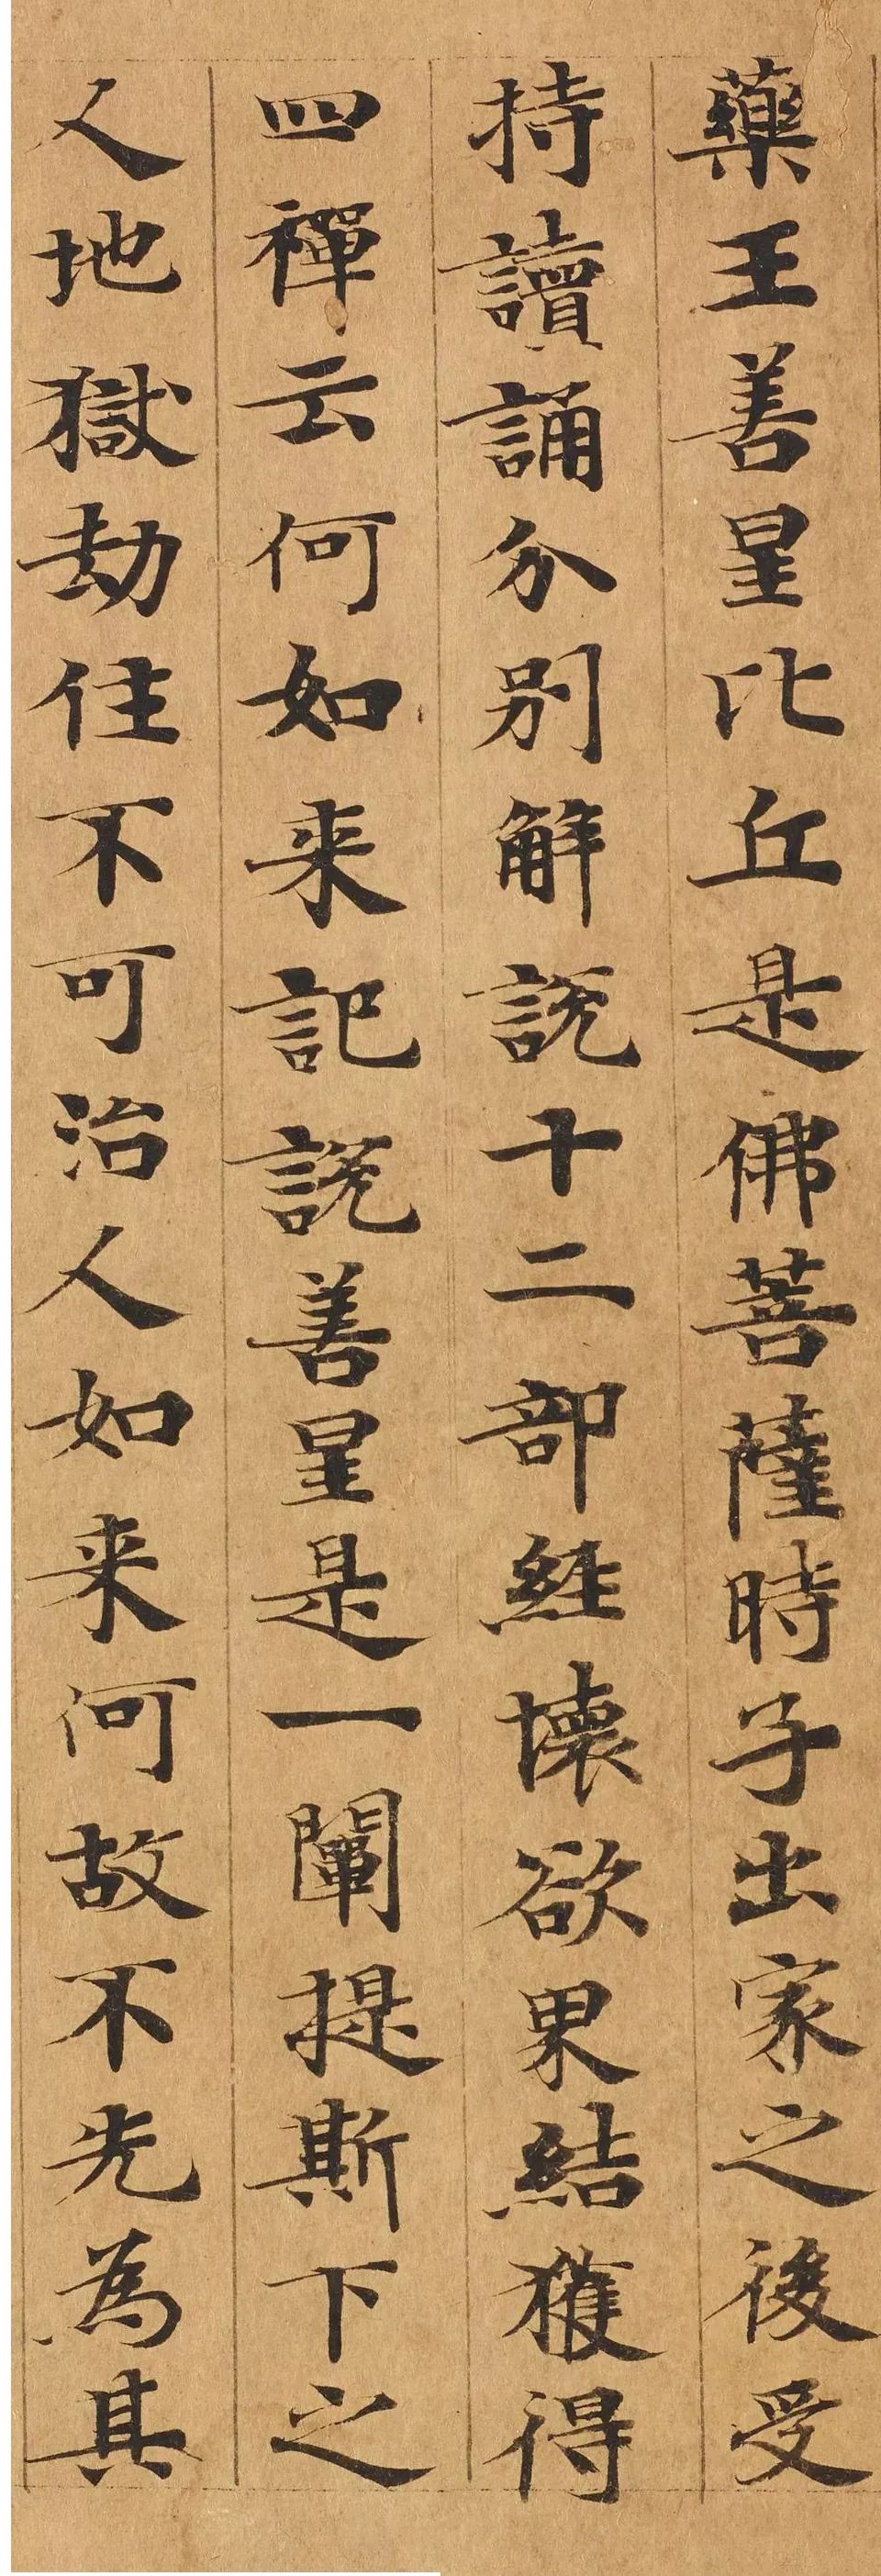 藥王善星比丘是佛菩薩時子出家之後受
持讀誦分別解說十二部經壞欲界結獲得
四禪云何如来記說善星是一闡提斯下之
人地獄劫住不可治人如来何故不先為其